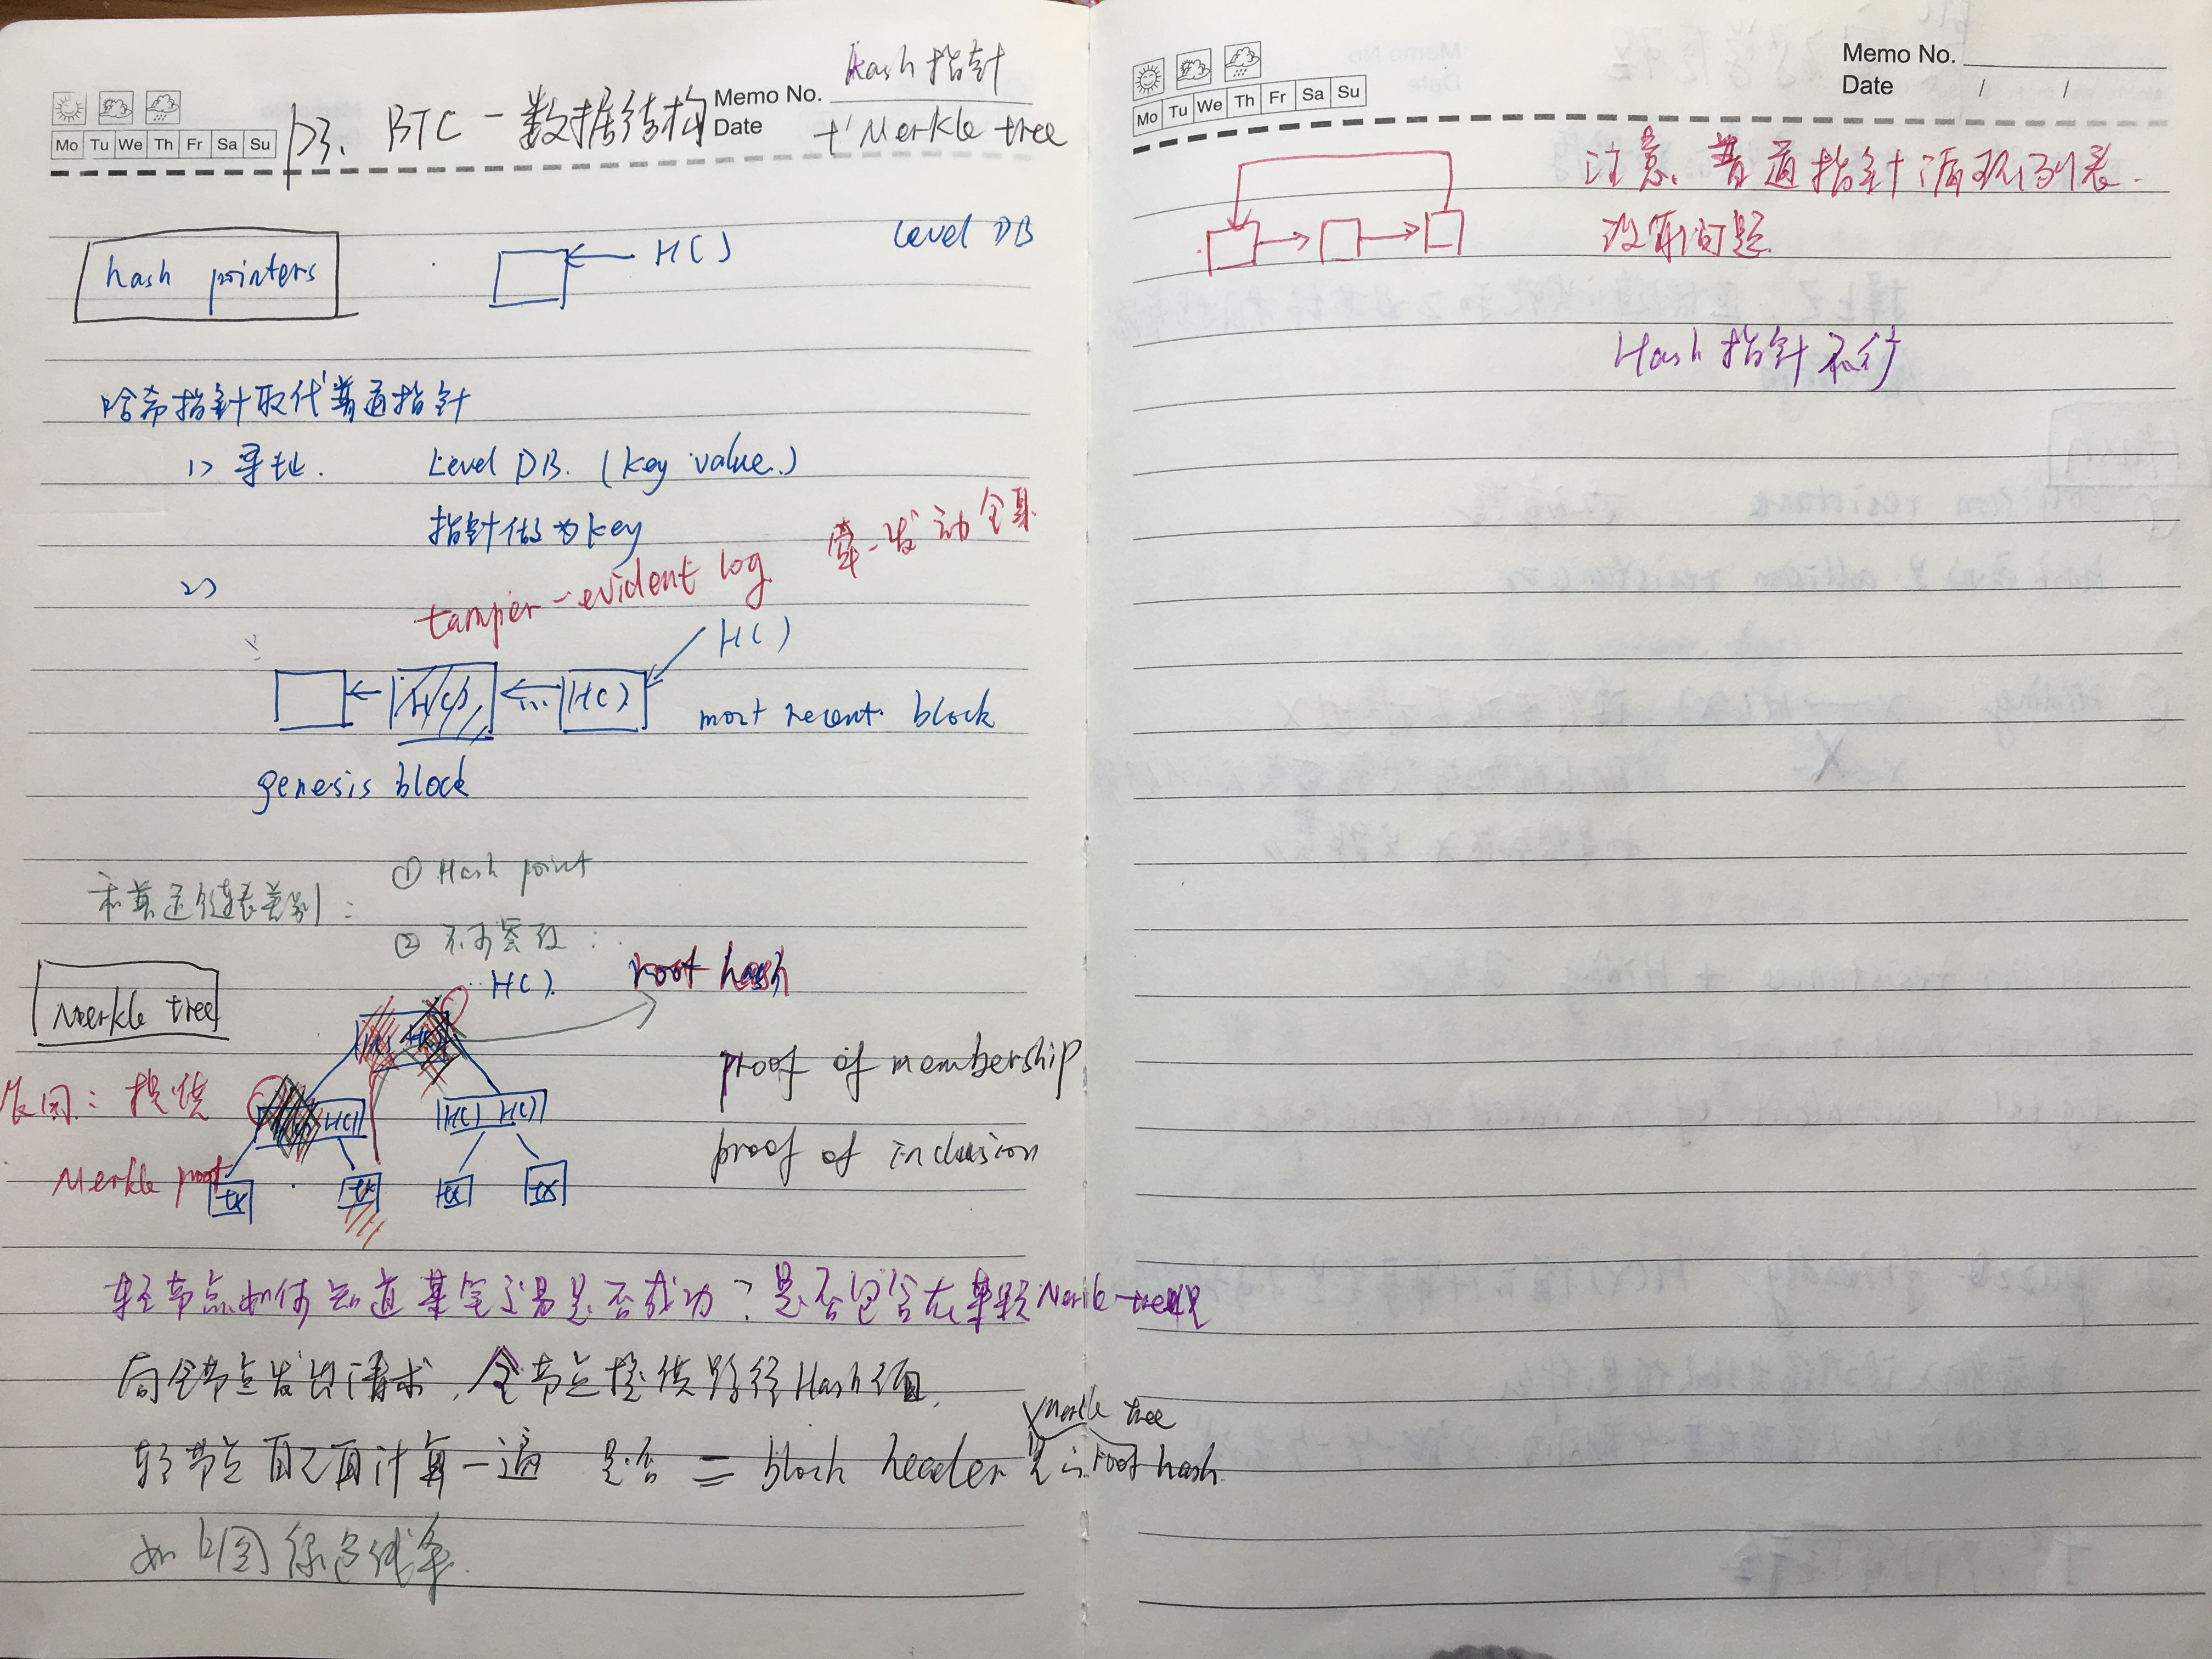 Mo Tu We Th Fr Sa Su
P3. BTC-数据结构
Memo No. hash 指针
Date + Merkle tree
hash pointers
H()
Level DB
哈希指针取代普通指针
1) 寻址. Level DB. (key value.)
指针做为key
2) tamper-evident log 牵一发动全身
H()
H() ... H()
most recent block
genesis block
和普通链表差别:
① Hash point
② 不可篡改:
Merkle tree
H()
root hash
H() H()
H()
H() H()
tx tx tx tx
作用: 提供
Merkle proof
proof of membership
proof of inclusion
轻节点如何知道某笔交易是否成功? 是否包含在某颗Merkle tree里
向全节点发出请求, 全节点提供路径Hash值.
轻节点自己再计算一遍 是否 = block header 里的root hash
Merkle tree
如上图绿色线条.
Memo No.
Date / /
Mo Tu We Th Fr Sa Su
注意、普通指针循环列表.
没有问题.
Hash 指针不行